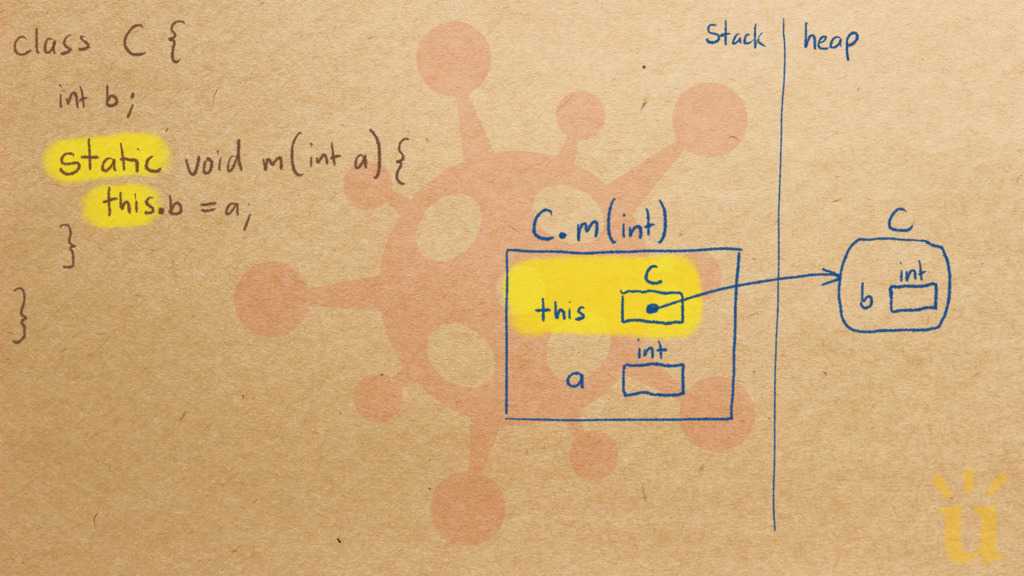 class C {
int b;
static void m(int a) {
this.b = a;
}
}
Stack heap
C.m(int)
C
this
int
a
C
int
b
ü